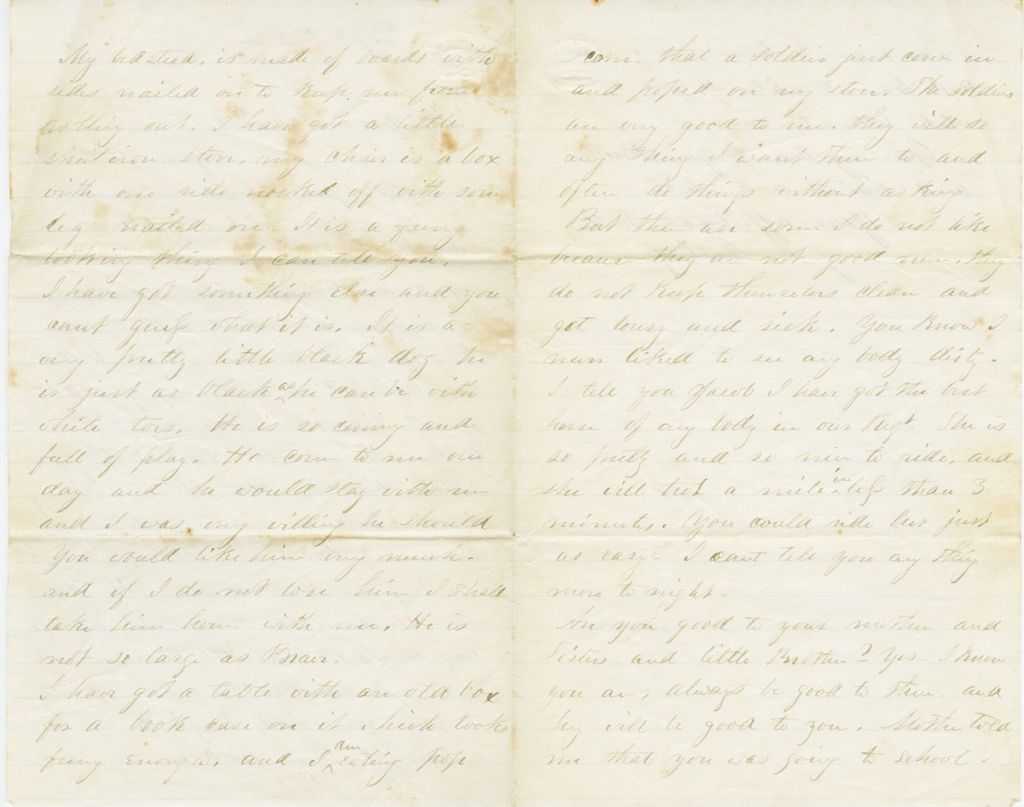 My bedstead, is made of boards with
sides nailed on to keep me from
rolling out. I have got a little
sheetiron stove, my chair is a box
with one side nocked off with some
leg nailed on. It is a funy
looking thing I can tell you.
I have got something else and you
cant guess what it is. It is a
very pretty little black dog he
is just as black as he can be with
white toes. He is so cuning and
full of play. He come to me one
day and he would stay with me
and I was very willing he should
You would like him very much.
and if I do not lose him I shall
take him home with me. He is
not so large as Brave.
I have got a table with an old box
for a book case on it which looks
funy enough, and I am eating pop
corn. that a soldier just come in
and poped on my stove. The soldiers
are very good to me. they will do
any thing I want them to and
often do things without asking
But there are some I do not like
because they are not good men. they
do not keep themselves clean and
get lousy and sick. You know I
never liked to see any body dirty.
I tell you Jacob I have got the best
horse of any body in our Regt. She is
so pretty and so nice to ride, and
she will trot a mile in less than 3
minutes. You could ride her just
as easy - I cant tell you any thing
more to night -
Are you good to your mother and
Sisters and little Brother? Yes - I know
you are, always be good to them, and
they will be good to you. Mother told
me that you was going to School.